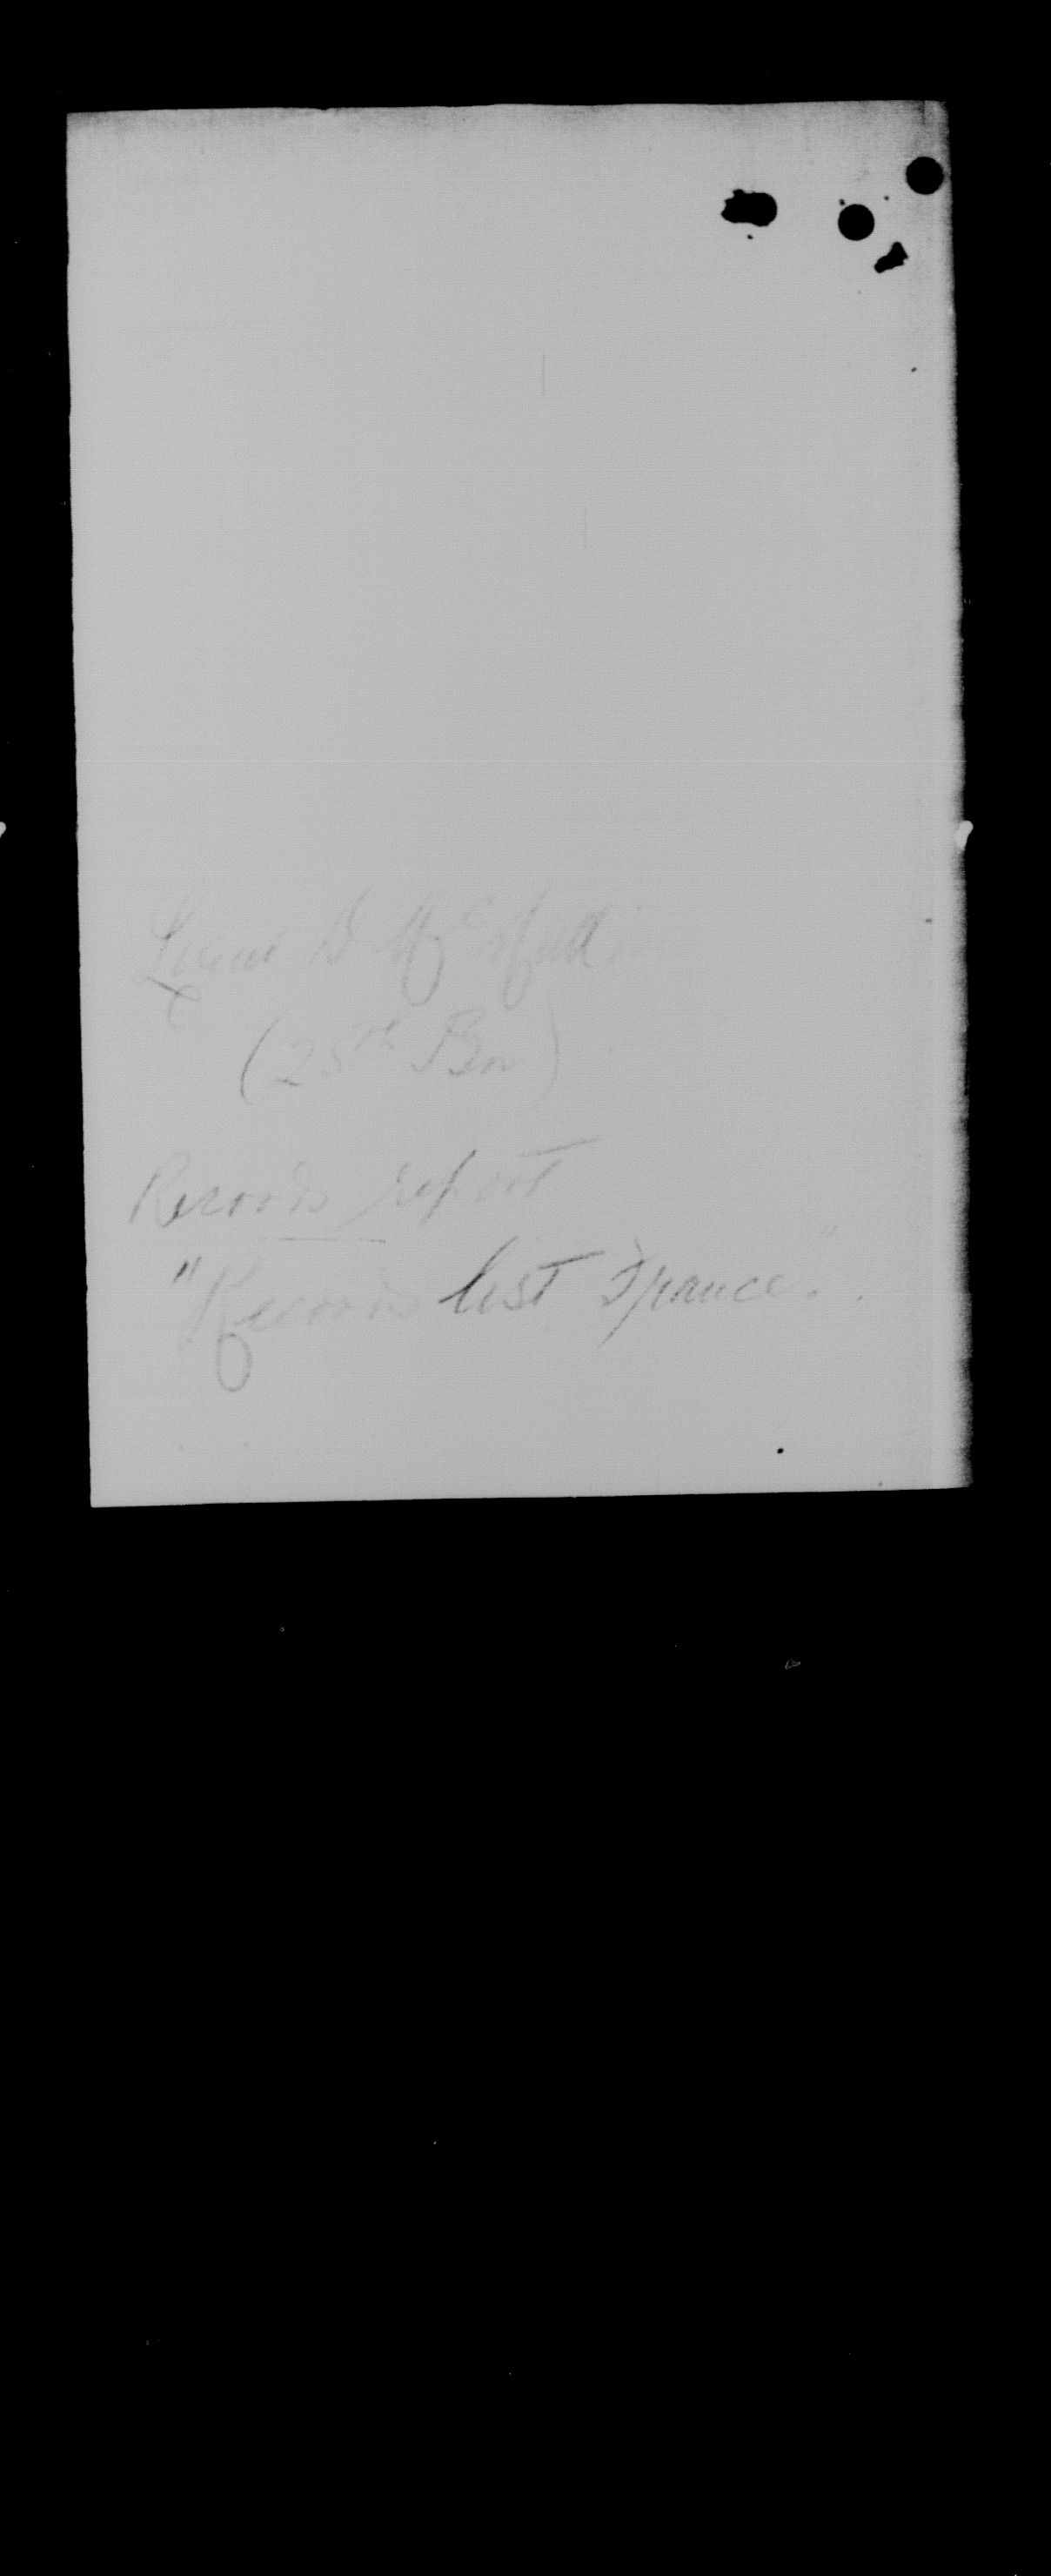 Lieut B
(25th Bn)
Records report
"Records lost France".